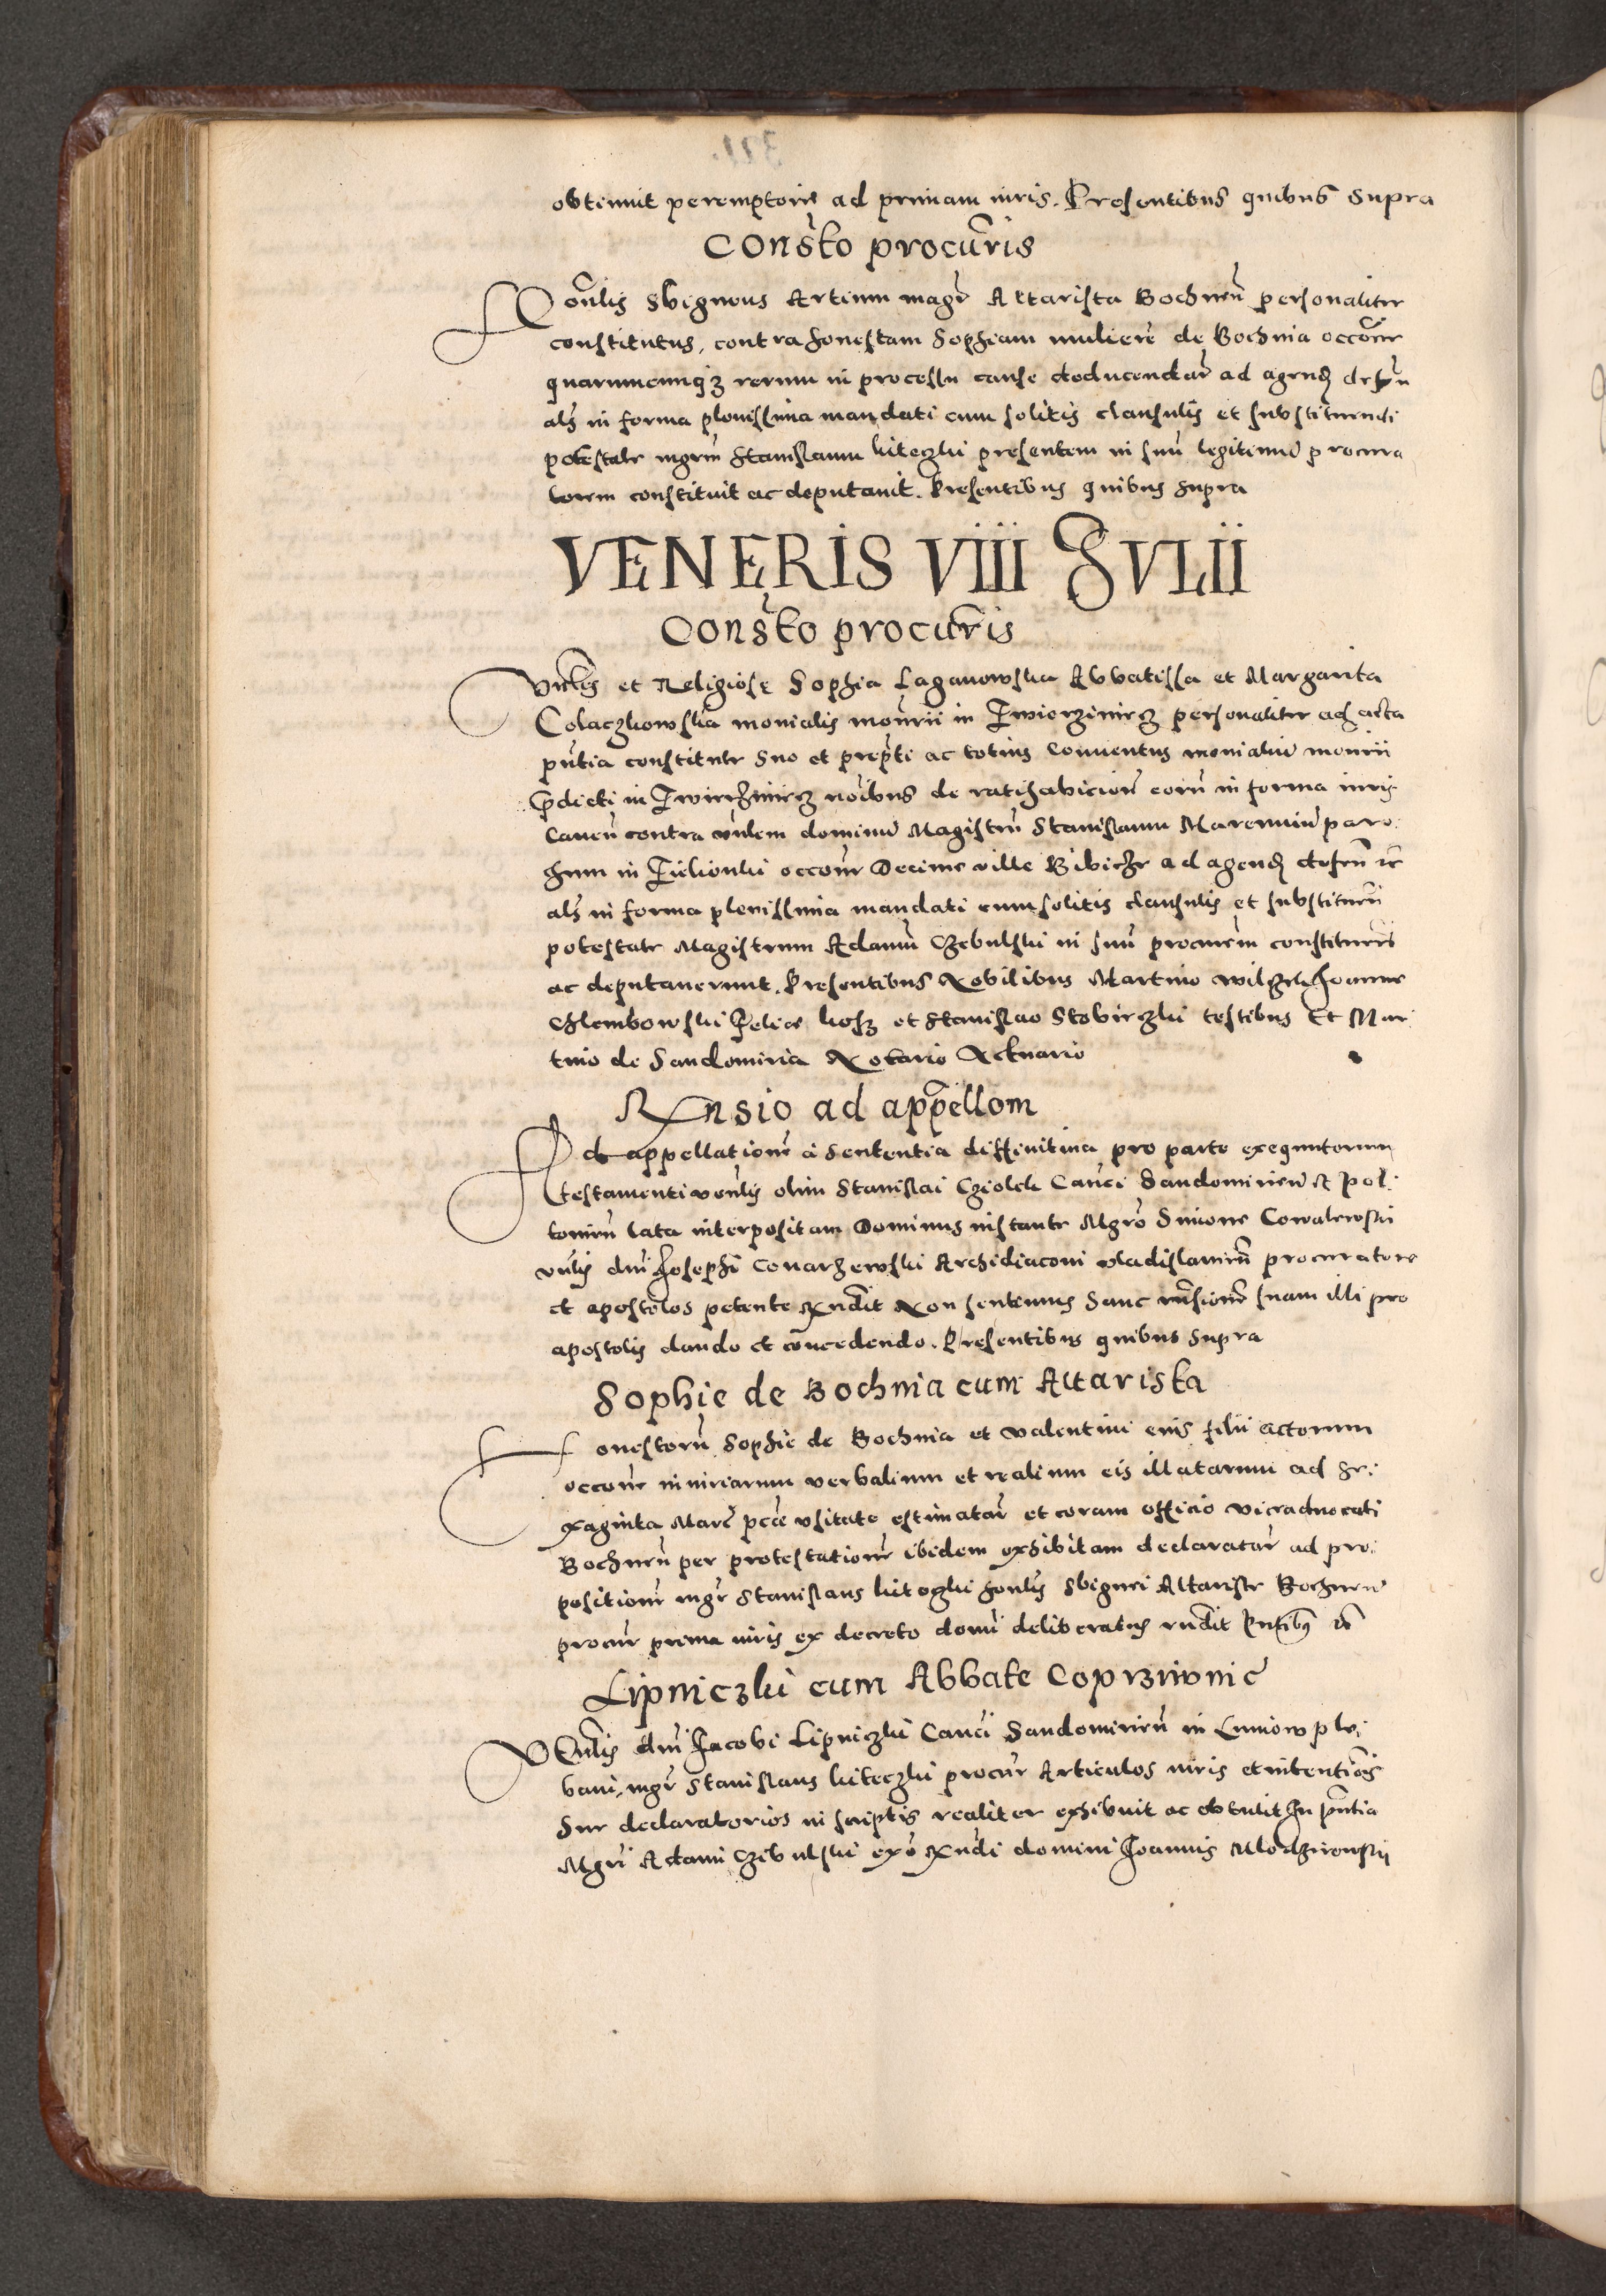 obtinuit peremptorie ad primam iuris. Presentibus quibus supra
Consto procuris
Honlis Sbigneus Artium magr Altarista Bochnen personaliter
constitutus, contra honestam Sophiam muliere de Bochnia occone
quarumcunqz rerum in processu cause deducendar ad agend defen
als in forma plenissima mandati cum solitis clausulis et substituendi
potestate mgrm Stanislaum kiteczki presentem in suu legitimu procura
torem constituit ac deputauit. Presentibus quibus supra
VENERIS VIII IVLII
Consto procuris
et Religiose Sophia Laganowska Abbatissa et Margarita
Colaczkowska monialis monrii in Zwierzinicz personaliter ad acta
pntia constitute suo et ac totius Conuentus monialiu monrii
pdicti in Zwierzinicz noibus de ratihabicion eoru in forma iuris
Caueu contra vnlem dominu Magistru Stanislaum Maremiu paro
chum in Zielionki occone Decime ville Bibicze ad agend defen etc
als in forma plenissima mandati cum solitis clausulis et substituen
potestate Magistrum Adamu Czebulski in suu procurem constituerut
ac deputauerunt. Presentibus Nobilibus Martino wilczek Joanne
Chlembowski Felice kosz et Stanislao Stobieczki testibus Et Mar
tino de Sandomiria Notario Actuario
Rnsio ad appellom
Ad appellatione a sententia diffinitiua pro parte exequutorum
testamenti venlis olim Stanislai Cziolek Canci Sandomirien et Pol
touien lata interpositam Dominus instante Mgro Simone Cowalewski
vnlis dni Josephi Conarzewski Archidiaconi wladislauien procuratore
et apostolos petente Rndit Non sentimus hanc rnsione suam illi pro
apostolis dando et concedendo. Presentibus quibus supra
Sophie de Bochnia cum Altarista
Honestoru Sophie de Bochnia et valentini eius filii actorum
occone iniuriarum verbalium et realium eis illatarum ad se
xaginta Marc pcce vsitate estimatar et coram officio viceaduocati
Bochnen per protestatione ibidem exhibitam declaratar ad pro
positione mgr Stanislaus kiteczki honlis Sbignei Altariste Bochnen
procur prima iuris ex decreto domi deliberatus rndit Pntibus etc
Lipniczki cum Abbate Coprziwnic
Venlis dni Jacobi Lipniczki Canci Sandomirien in Lmiow ple
bani, mgr Stanislaus kiteczki procur Articulos iuris et intentiois
sue declaratorios in scriptis realiter exhibuit ac obtulit In pntia
Mgri Adami Czebulski exo Rndi domini Joannis Mlodzieiowski